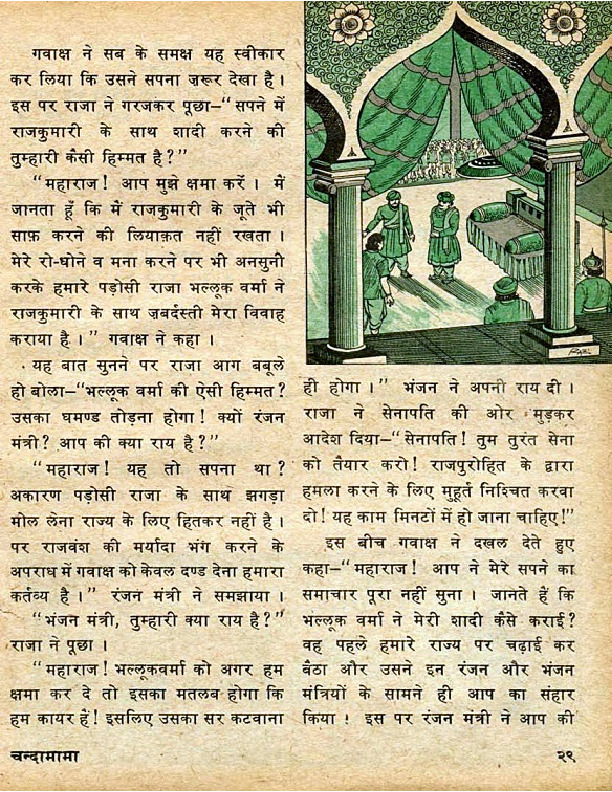 गवाक्ष ने सब के समक्ष यह स्वीकार
कर लिया कि उसने सपना ज़रूर देखा है ।
इस पर राजा ने गरजकर पूछा–“ सपने में
राजकुमारी के साथ शादी करने की
तुम्हारी कैसी हिम्मत है ?”
“महाराज ! आप मुझे क्षमा करें । मैं
जानता हूँ कि मैं राजकुमारी के जूते भी
साफ़ करने की लियाक़त नहीं रखता ।
मेरे रो-धोने व मना करने पर भी अनसुनी
करके हमारे पड़ोसी राजा भल्लूक वर्मा ने
राजकुमारी के साथ ज़बर्दस्ती मेरा विवाह
कराया है ।” गवाक्ष ने कहा ।
यह बात सुनने पर राजा आग बबूले
हो बोला–“भल्लूक वर्मा की ऐसी हिम्मत ?
उसका घमण्ड तोड़ना होगा ! क्यों रंजन
मंत्री ? आप की क्या राय है ?”
“महाराज ! यह तो सपना था ?
अकारण पड़ोसी राजा के साथ झगड़ा
मोल लेना राज्य के लिए हितकर नहीं है ।
पर राजवंश की मर्यादा भंग करने के
अपराध में गवाक्ष को केवल दण्ड देना हमारा
कर्तव्य है ।” रंजन मंत्री ने समझाया ।
“भंजन मंत्री, तुम्हारी क्या राय है ?”
राजा ने पूछा ।
“महाराज ! भल्लूकवर्मा को अगर हम
क्षमा कर दे तो इसका मतलब होगा कि
हम कायर हैं ! इसलिए उसका सर कटवाना
ही होगा ।” भंजन ने अपनी राय दी ।
राजा ने सेनापति की ओर मुड़कर
आदेश दिया–“सेनापति ! तुम तुरंत सेना
को तैयार करो ! राजपुरोहित के द्वारा
हमला करने के लिए मुहूर्त निश्चित करवा
दो ! यह काम मिनटों में हो जाना चाहिए !”
इस बीच गवाक्ष ने दखल देते हुए
कहा–“महाराज ! आप ने मेरे सपने का
समाचार पूरा नहीं सुना । जानते हैं कि
भल्लूक वर्मा ने मेरी शादी कैसे कराई ?
वह पहले हमारे राज्य पर चढ़ाई कर
बैठा और उसने इन रंजन और भंजन
मंत्रियों के सामने ही आप का संहार
किया ! इस पर रंजन मंत्री ने आप की
चन्दामामा
२९